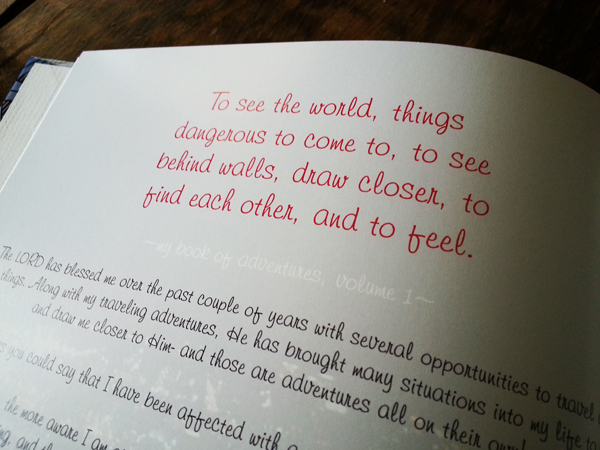 To see the world, things
dangerous to come to, to see
behind walls, draw closer, to
find each other, and to feel.
~my book of adventures, volume 1~
The LORD has blessed me over the past couple of years with several opportunities to travel
things. Along with my traveling adventures, He has brought many situations into my life to
and draw me closer to Him- and those are adventures all on their own
you could say that I have been affected with a
the more aware I am
and